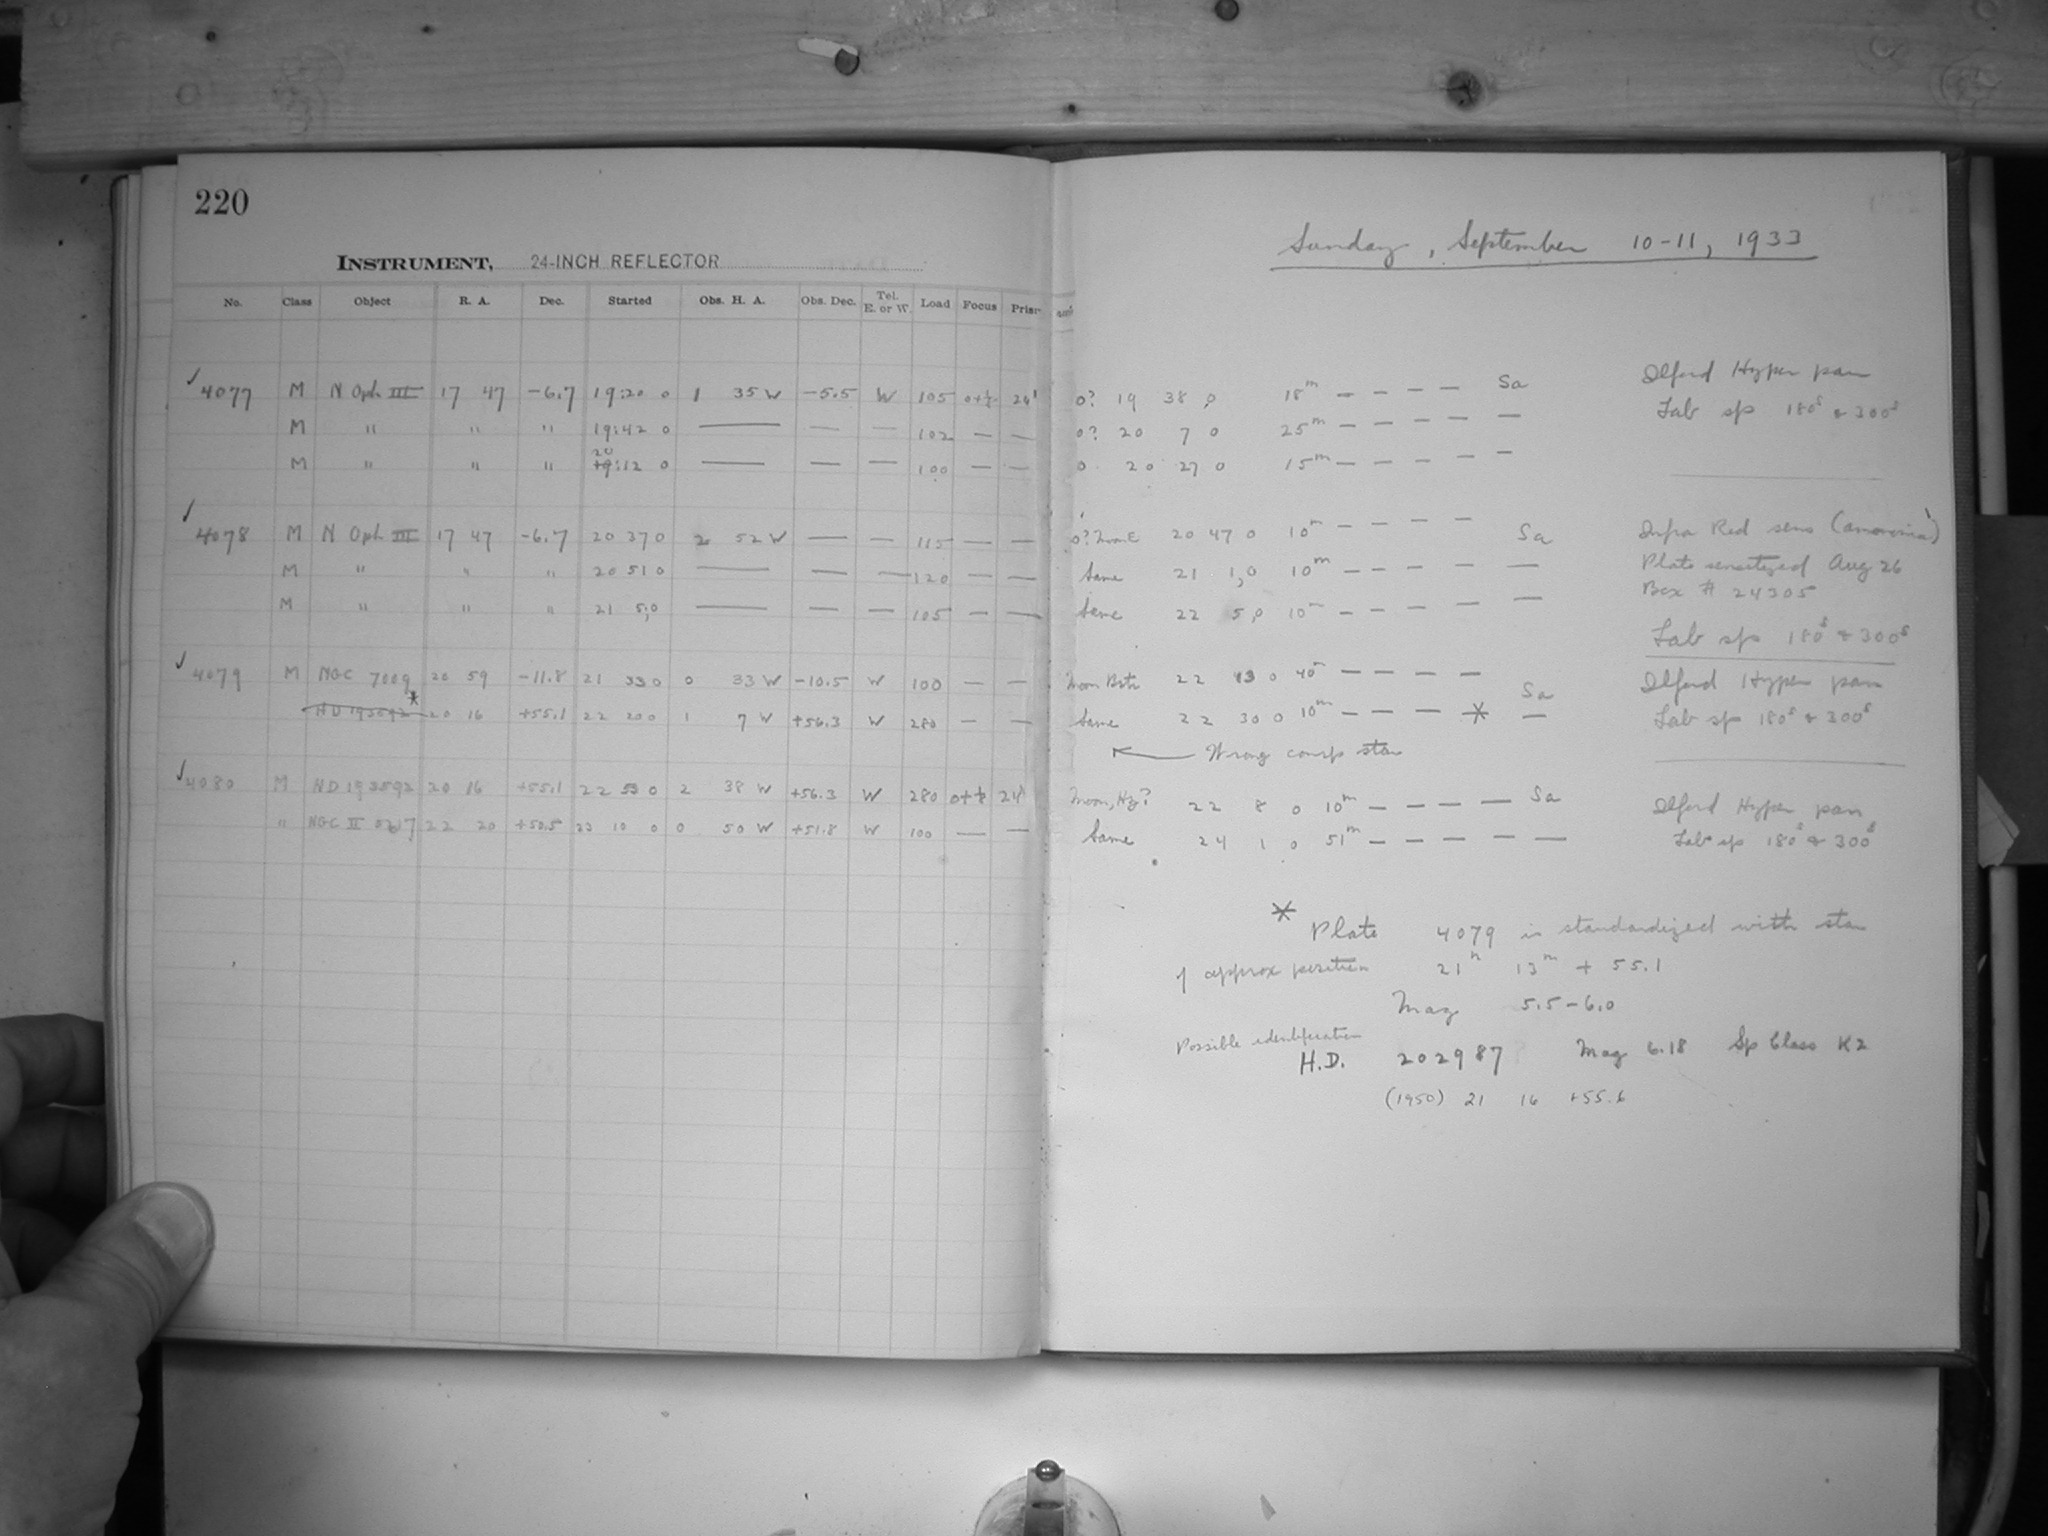 220
Sunday, September 10-11, 1933
INSTRUMENT, 24-INCH REFLECTOR
No. Class Object R. A. Dec. Started Obs. H. A. Obs. Dec. Tel. E. or W. Load Focus Prism
4077 M N Oph III 17 47 -6.7 19:20 0 1 35 W -5.5 W 105 0+½ 24" 0? 19 38 0 18m — — — — Sa Ilford Hyper pan
M " " " 19:42 0 — — — 102 — — 0? 20 7 0 25m — — — — — Lab sp 180s & 300s
M " " " 20 19:12 0 — — — 100 — — 0 20 27 0 15m — — — — —
4078 M N Oph III 17 47 -6.7 20 37 0 2 52 W — — 115 — — 0? Moon E 20 47 0 10m — — — — Sa Infra Red sens (ammonia)
M " " " 20 51 0 — — — 120 — — Same 21 1,0 10m — — — — — Plate sensitized Aug 26
Box # 24305
M " " " 21 5,0 — — — 105 — — Same 22 5,0 10m — — — — —
Lab sp 180s & 300s
4079 M NGC 7009 20 59 -11.8 21 33 0 0 33 W -10.5 W 100 — — Moon 22 13 0 40m — — — — Sa Ilford Hyper pan
HD 193592 * 20 16 +55.1 22 20 0 1 7 W +56.3 W 280 — — Same 22 30 0 10m — — — * — Lab sp 180s & 300s
← Wrong comp star
4080 M HD 193592 20 16 +55.1 22 53 0 2 38 W +56.3 W 280 0+½ 24" Moon, Hz? 22 8 0 10m — — — — Sa Ilford Hyper pan
" NGC II 5217 22 20 +50.5 23 10 0 0 50 W +51.8 W 100 — — Same 24 1 0 51m — — — — — Lab sp 180s & 300s
* Plate 4079 is standardized with star
of approx position 21h 13m + 55.1
Mag 5.5-6.0
Possible identification
H.D. 202987 Mag 6.18 Sp Class K2
(1950) 21 16 +55.6